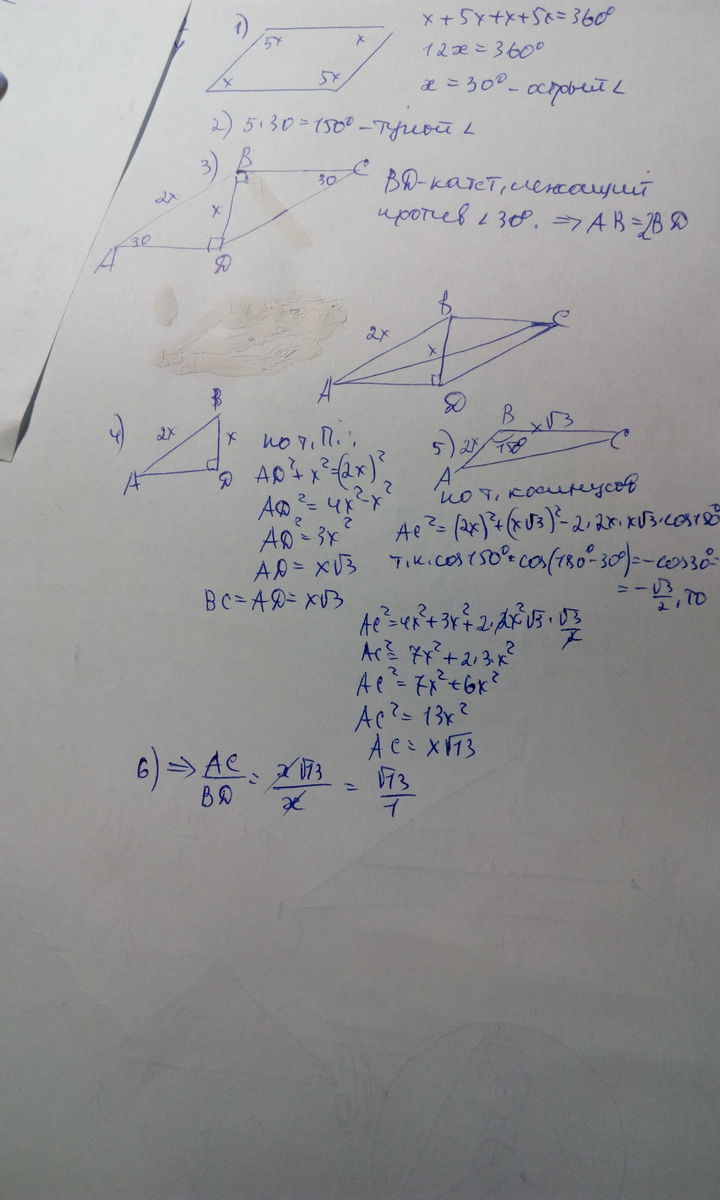 1)
5x x
x 5x
x + 5x + x + 5x = 360°
12x = 360°
x = 30° – острый ∠
2) 5·30 = 150° – тупой ∠
3)
B C
2x x 30
A 30 D
BD – катет, лежащий
против ∠30°. ⇒ AB = 2BD
B C
2x x
A D
4)
B
2x x
A D
по т. П.:
AD² + x² = (2x)²
AD² = 4x² – x²
AD² = 3x²
AD = x√3
BC = AD = x√3
5)
B x√3 C
2x 150°
A
по т. косинусов
AC² = (2x)² + (x√3)² – 2·2x·x√3·cos150°
т.к. cos150° = cos(180° – 30°) = – cos30° =
= – √3/2, то
AC² = 4x² + 3x² + 2·2x²√3·√3/2
AC² = 7x² + 2·3·x²
AC² = 7x² + 6x²
AC² = 13x²
AC = x√13
6) ⇒ AC/BD = x√13/x = √13/1